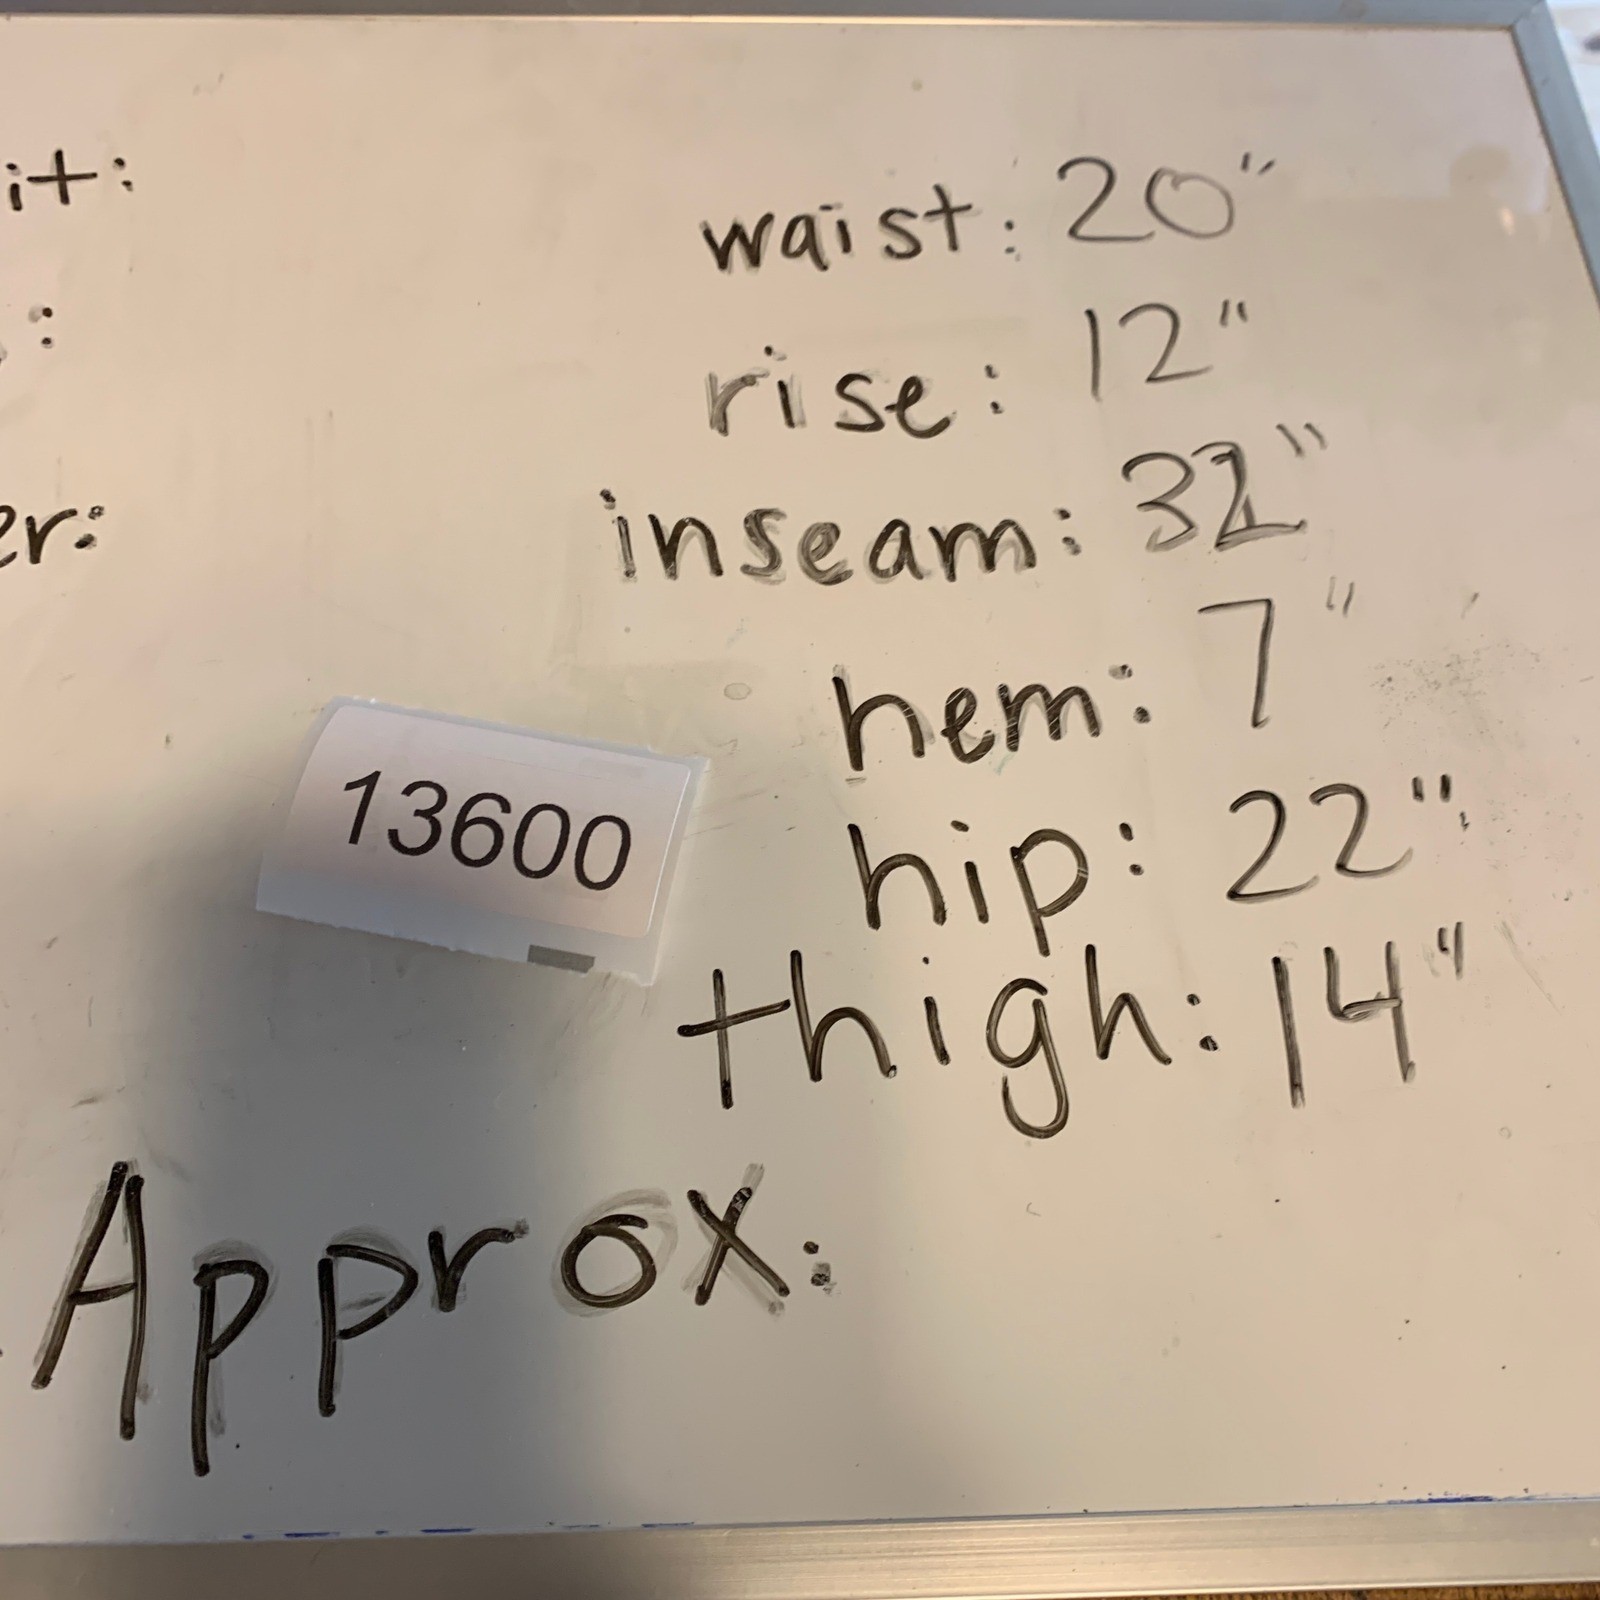 it:
waist: 20"
:
rise: 12"
er:
inseam: 32"
hem: 7"
13600
hip: 22"
thigh: 14"
Approx: